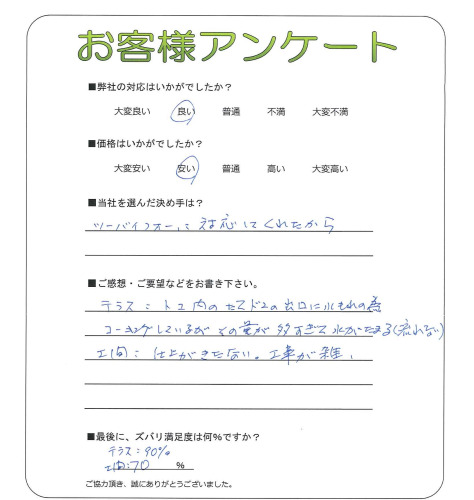 お客様アンケート
■弊社の対応はいかがでしたか？
大変良い 良い 普通 不満 大変不満
■価格はいかがでしたか？
大変安い 安い 普通 高い 大変高い
■当社を選んだ決め手は？
ツーバイフォーに対応してくれたから
■ご感想・ご要望などをお書き下さい。
テラス：トユ内のたてドユの出口に水もれの為
コーキングしているがその量が多すぎて水がたまる(流れない)
土間：仕上がきたない。工事が雑、
■最後に、ズバリ満足度は何％ですか？
テラス：90%
土間：70 ％
ご協力頂き、誠にありがとうございました。